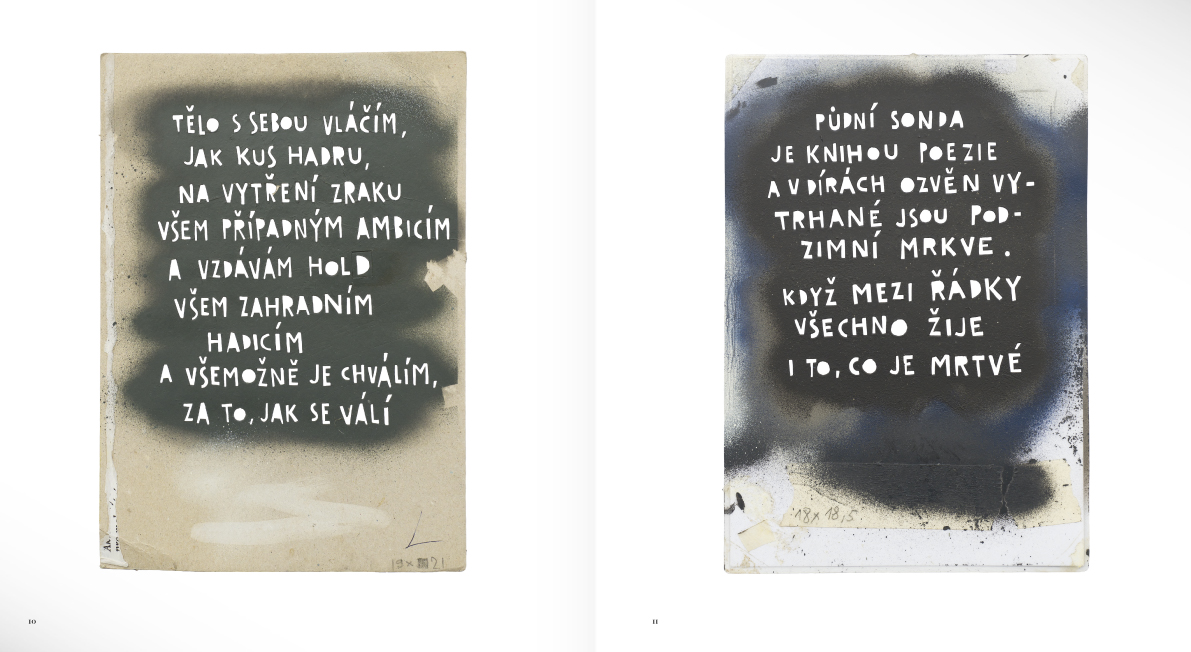 TĚLO S SEBOU VLÁČÍM,
JAK KUS HADRU,
NA VYTŘENÍ ZRAKU
VŠEM PŘÍPADNÝM AMBICÍM
A VZDÁVÁM HOLD
VŠEM ZAHRADNÍM
HADICÍM
A VŠEMOŽNĚ JE CHVÁLÍM,
ZA TO, JAK SE VÁLÍ
L
10
PŮDNÍ SONDA
JE KNIHOU POEZIE
A V DÍRÁCH OZVĚN VY-
TRHANÉ JSOU POD-
ZIMNÍ MRKVE.
KDYŽ MEZI ŘÁDKY
VŠECHNO ŽIJE
I TO, CO JE MRTVÉ
18 x 18,5
11